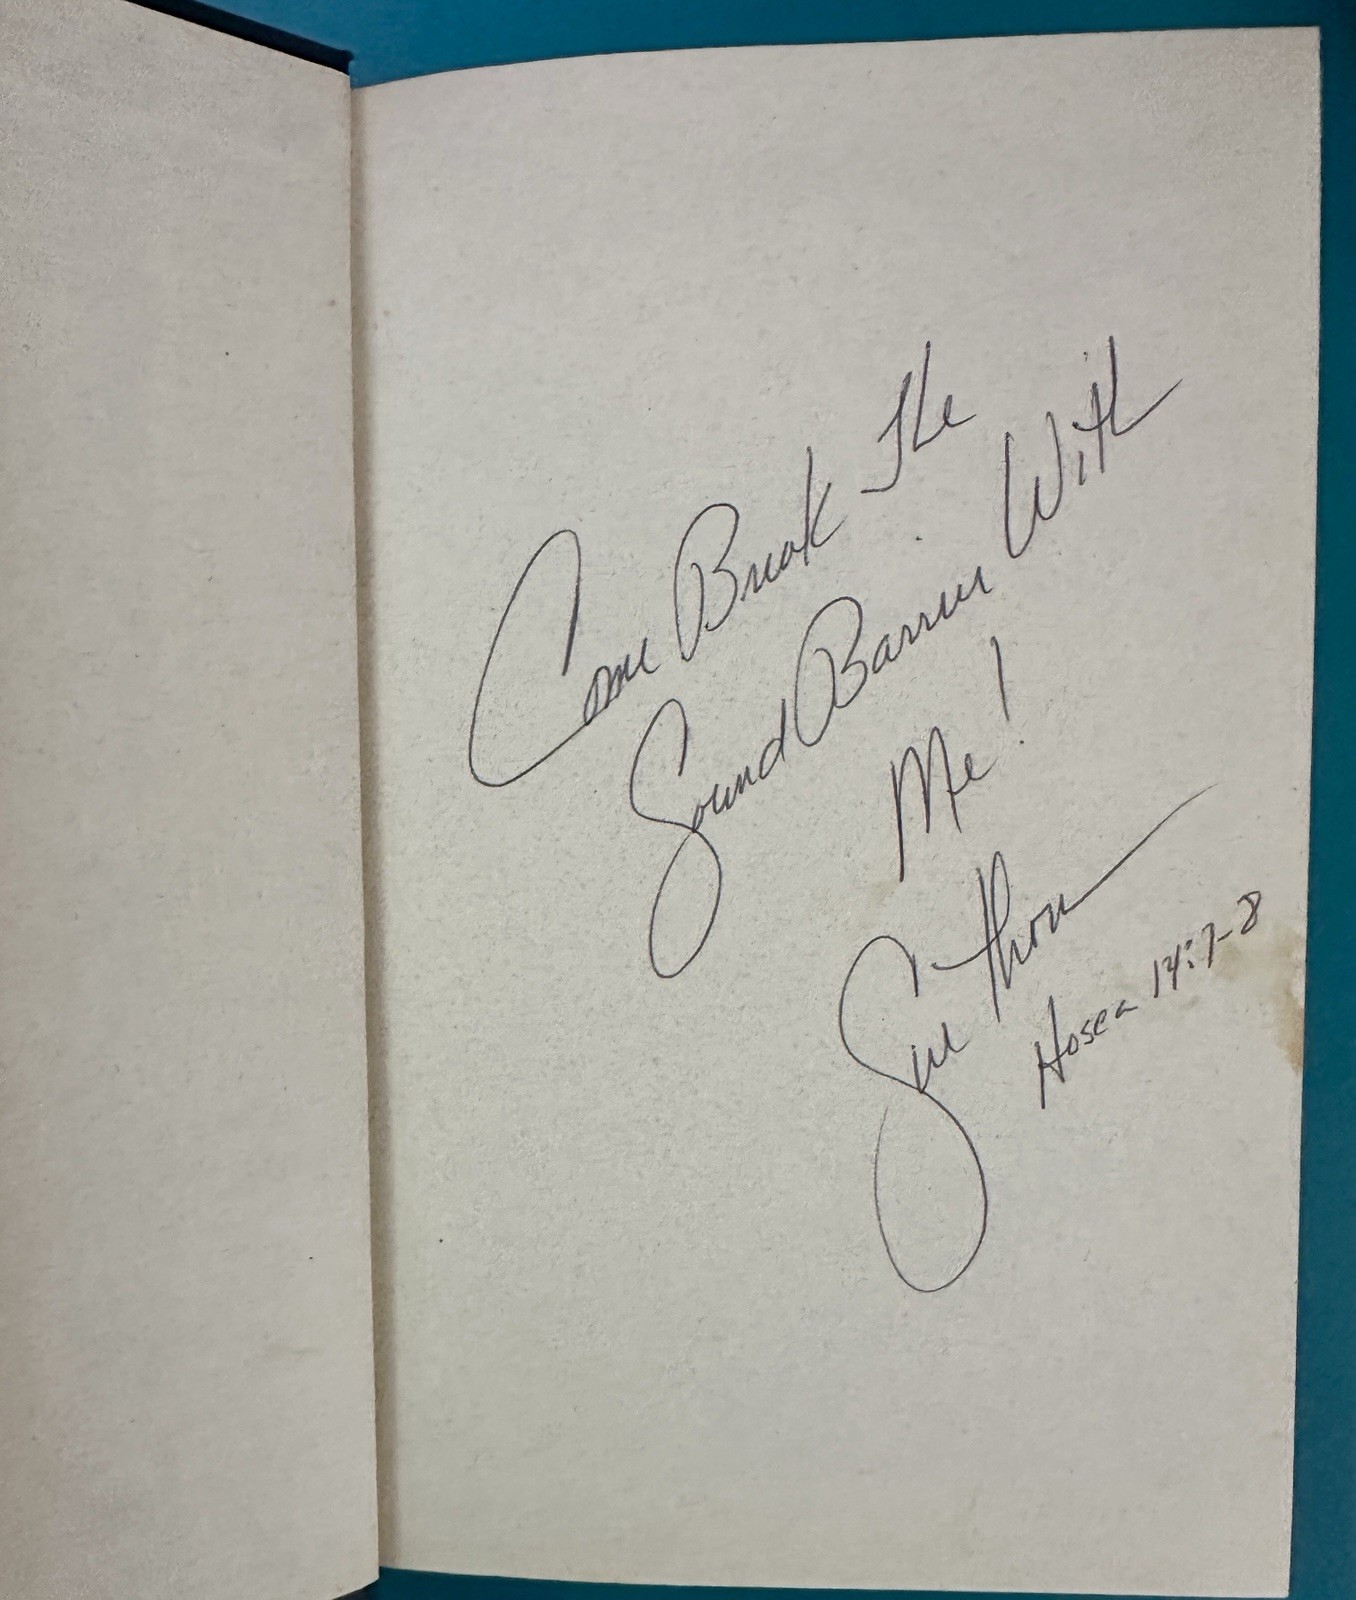 Come Break The
Sound Barrier With
Me!
Sue Thomas
Hosea 14:7-8